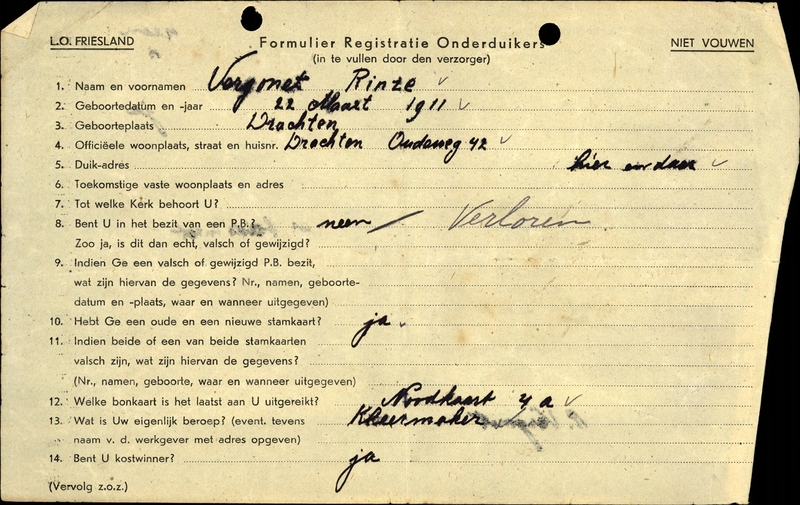 L.O. FRIESLAND
Formulier Registratie Onderduikers
NIET VOUWEN
(in te vullen door den verzorger)
1. Naam en voornamen Vergonet Rinze
2. Geboortedatum en -jaar 22 Maart 1911
3. Geboorteplaats Drachten
4. Officiëele woonplaats, straat en huisnr. Drachten Oudeweg 42
5. Duik-adres hier en daar
6. Toekomstige vaste woonplaats en adres
7. Tot welke Kerk behoort U?
8. Bent U in het bezit van een P.B.? neen / Verloren
Zoo ja, is dit dan echt, valsch of gewijzigd?
9. Indien Ge een valsch of gewijzigd P.B. bezit,
wat zijn hiervan de gegevens? Nr., namen, geboorte-
datum en -plaats, waar en wanneer uitgegeven)
10. Hebt Ge een oude en een nieuwe stamkaart? ja
11. Indien beide of een van beide stamkaarten
valsch zijn, wat zijn hiervan de gegevens?
(Nr., namen, geboorte, waar en wanneer uitgegeven)
12. Welke bonkaart is het laatst aan U uitgereikt? Noodkaart 4 a
13. Wat is Uw eigenlijk beroep? (event. tevens Kleermaker
naam v. d. werkgever met adres opgeven)
14. Bent U kostwinner? ja
(Vervolg z.o.z.)